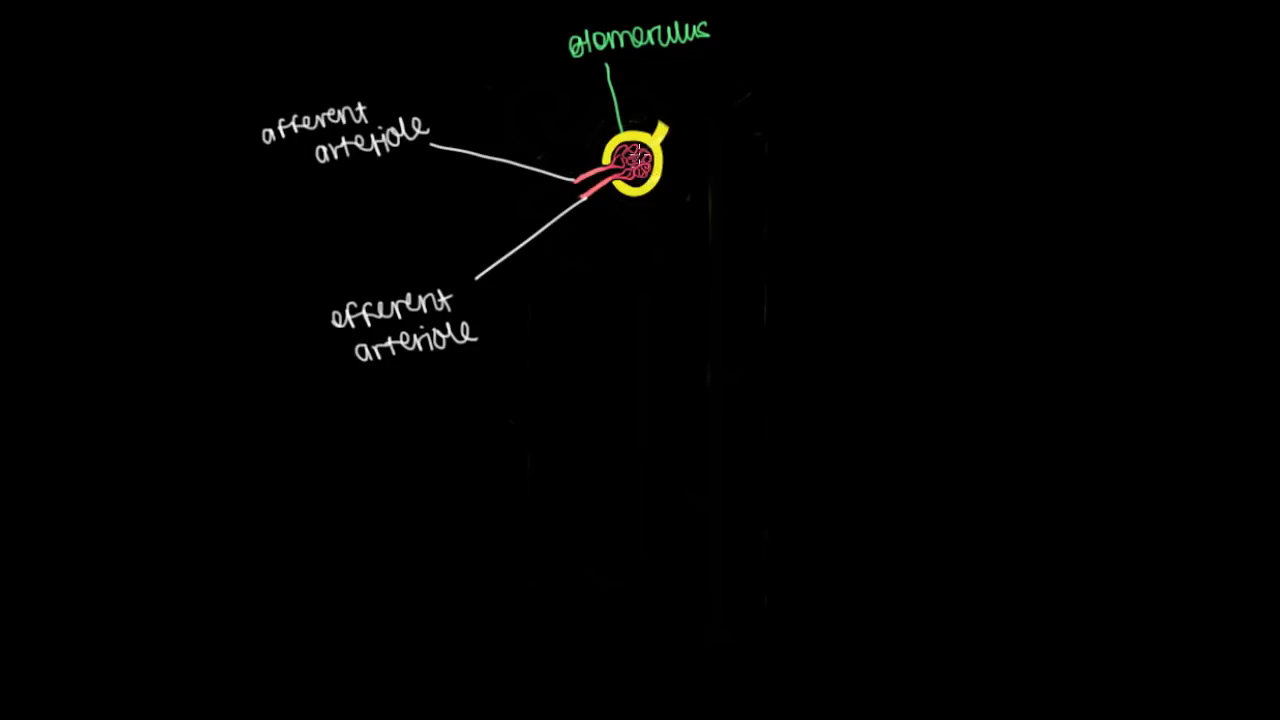 glomerulus
afferent
arteriole
efferent
arteriole